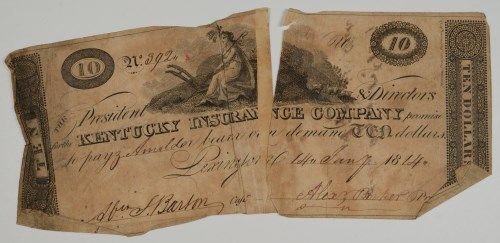 10 No. 392 No. 10
THE President & Directors
for the KENTUCKY INSURANCE COMPANY, promise
to pay J Arnolder bearer on demand TEN dollars.
Lexington 14 Jany 1814.
Wm. S. Barton Cash. Alexr Parker Pr.
TEN
TEN DOLLARS